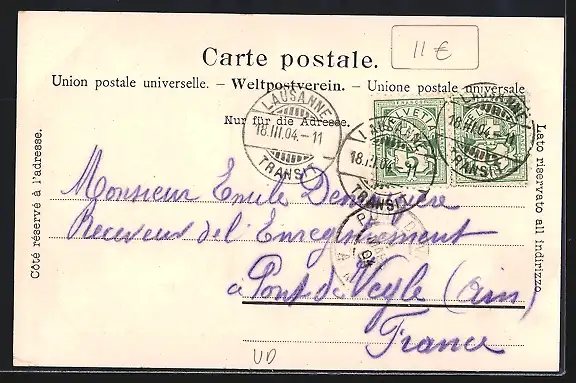 11 €
Carte postale.
Union postale universelle. – Weltpostverein. – Unione postale universale
Nur für die Adresse.
LAUSANNE
18.III.04.-11
TRANSIT
LAUSANNE
18.III.04
TRANSIT
LAUSANNE
18.III.04.-11
TRANSIT
HELVETIA
5
Côté réservé à l'adresse.
Lato riservato all indirizzo.
Monsieur Emile
Receveur de l'Enregistrement
a Pont de Veyle (ain)
France
UD